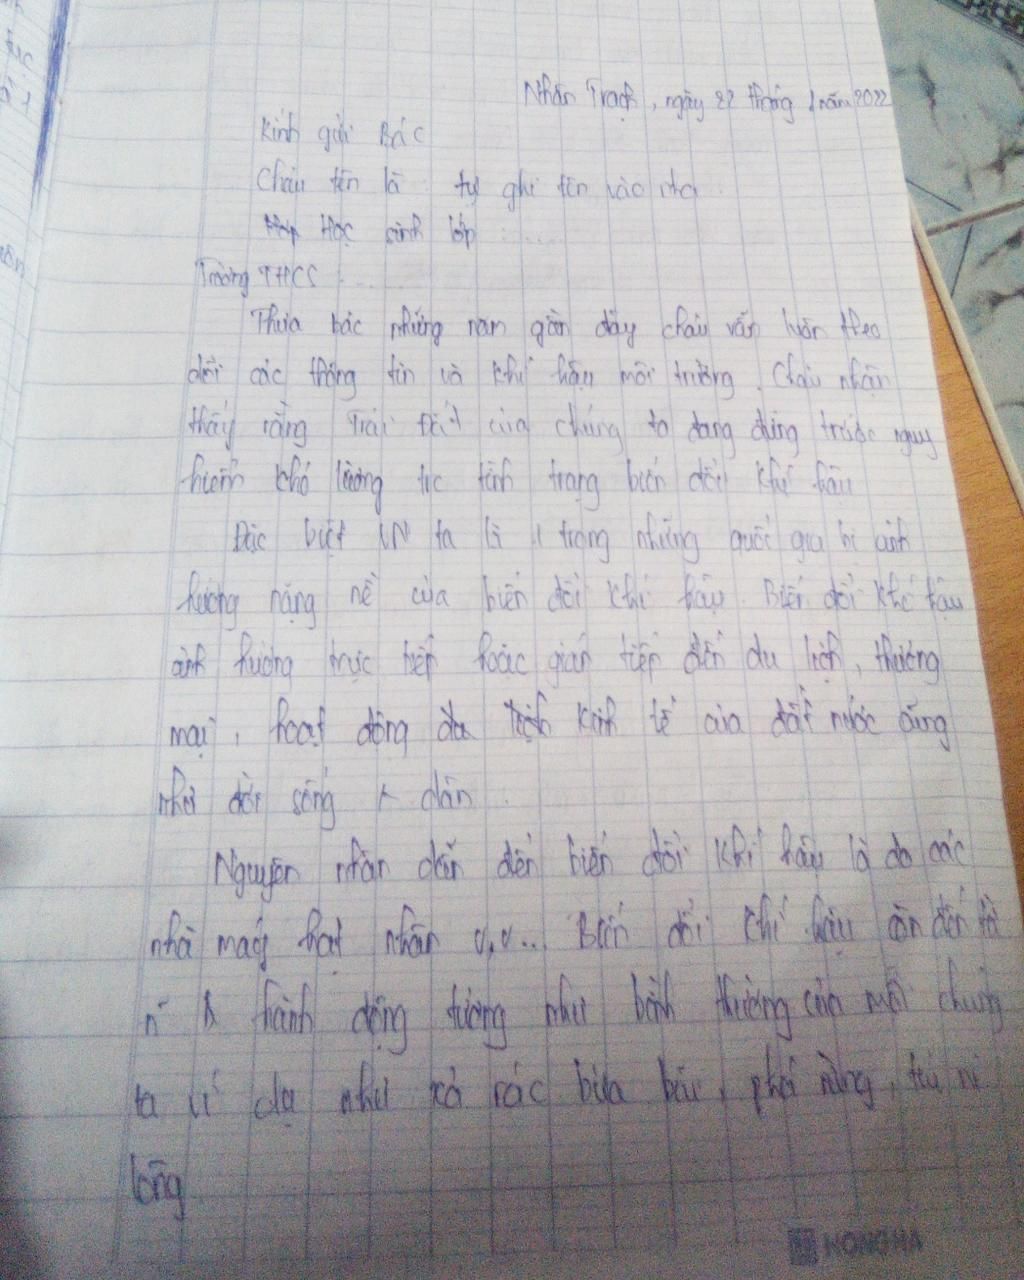 Nhân Trạch, ngày 27 tháng 1 năm 2022
Kính gửi Bác
Cháu tên là : tự ghi tên vào nha
Học sinh lớp : .....
Trường THCS ....
Thưa bác những năm gần đây cháu vẫn luôn theo
dõi các thông tin về khí hậu môi trường. Cháu nhận
thấy rằng Trái Đất của chúng ta đang đứng trước nguy
hiểm khó lường tình trạng biến đổi khí hậu
Đặc biệt VN ta là 1 trong những quốc gia bị ảnh
hưởng nặng nề của biến đổi khí hậu. Biến đổi khí hậu
ảnh hưởng trực tiếp hoặc gián tiếp đến du lịch, thương
mại, hoạt động kinh tế của đất nước cũng
như đời sống dân.
Nguyên nhân dẫn đến biến đổi khí hậu là do các
nhà máy hạt nhân v,v... Biến đổi khí hậu còn đến từ
hành động tưởng như bình thường của mỗi chúng
ta ví dụ như xả rác bừa bãi, phá rừng,
lông
HONG HA